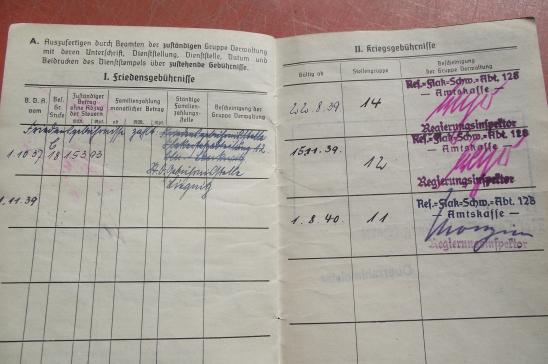 A. Auszufertigen durch Beamten der zuständigen Gruppe Verwaltung
mit deren Unterschrift, Dienststellung, Dienststelle, Datum und
Beidrucken des Dienststempels über zustehende Gebührnisse.
I. Friedensgebührnisse
B. D. A.
vom
Bes. Gr.
Stufe
Zuständiger
Betrag
ohne Abzug
der Steuern
RM. Rpf.
Familienzahlung
monatlicher Betrag
ab RM. Rpf.
Ständige
Familien-
zahlungs-
stelle
Bescheinigung
der Gruppe Verwaltung
Friedensgebührnisse zahlt
1.10.37
18 153 93
Liegnitz
1.11.39
II. Kriegsgebührnisse
Gültig ab
Stellengruppe
Bescheinigung
der Gruppe Verwaltung
22.8.39 14
Res.-Flak-Schw.-Abt. 128
— Amtskasse —
Regierungsinspektor
15.11.39 12
Res.-Flak-Schw.-Abt. 128
— Amtskasse —
Regierungsinspektor
1.8.40 11
Res.-Flak-Schw.-Abt. 128
— Amtskasse —
Regierungsinspektor